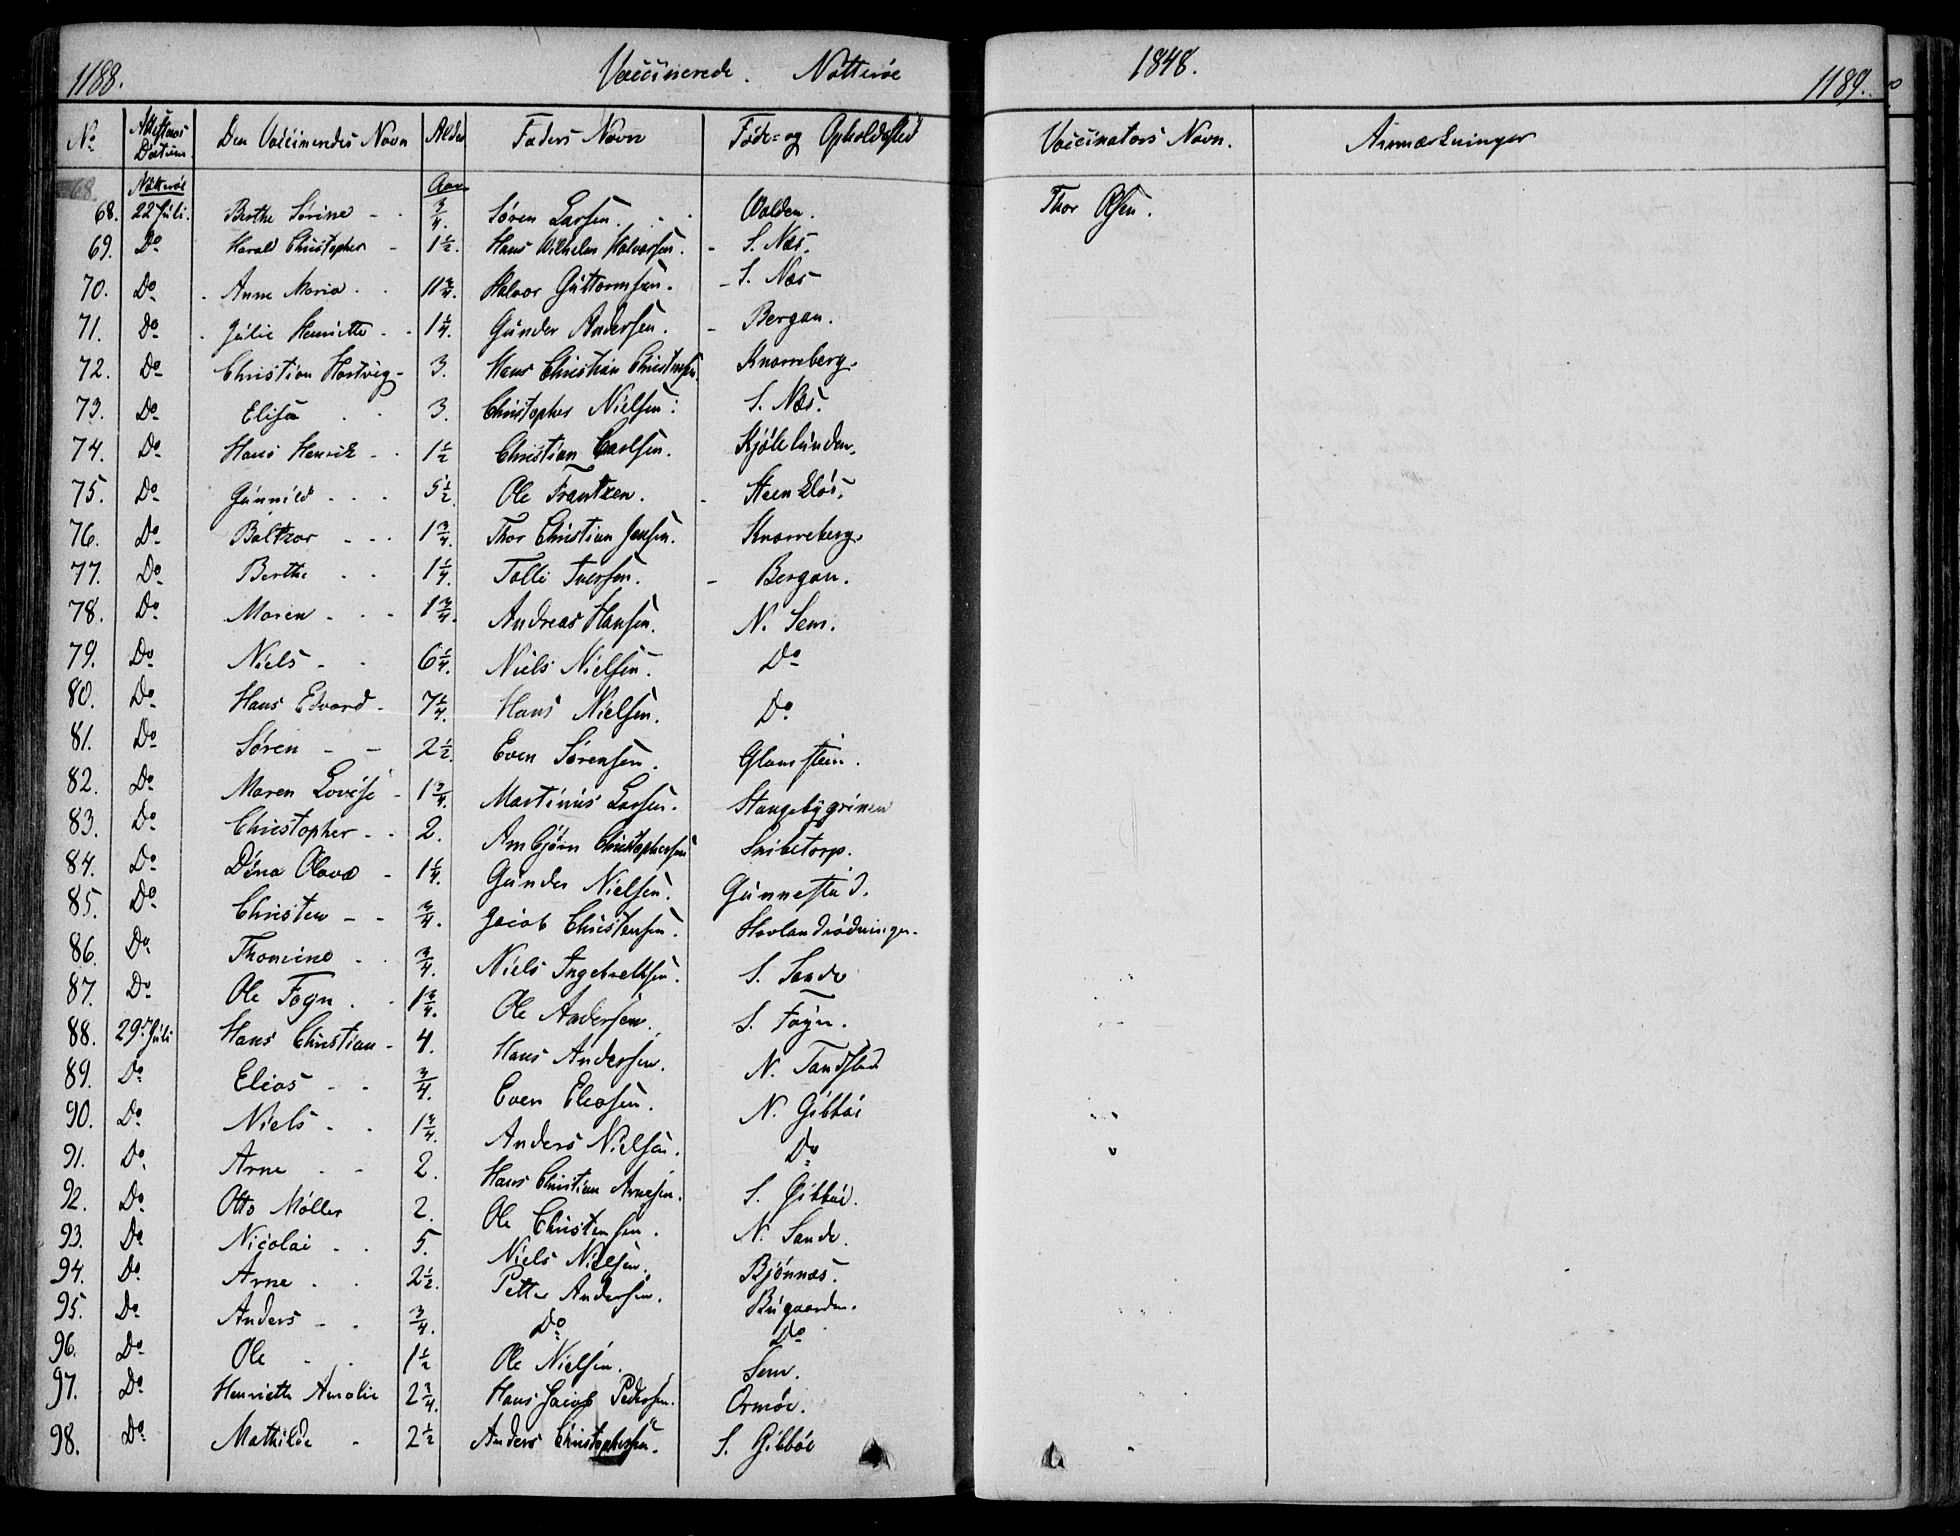 1188. Vaccinerede. Nøtterøe 1848. 1189.
No Attestens Datum Den Vaccineredes Navn Alder Faders Navn Føde- og Opholdssted Vaccinators Navn. Anmærkninger
68 Nøtterøe Aar
68. 22 Juli. Berthe Sørine - - 3/4. Søren Larsen. Volden. Thor Olsen.
69. Do Harald Christopher - 1 1/2. Hans Wilhelm Halvorsen. - S. Næs.
70. Do Anne Maria - - 11 3/4. Halvor Guttormsen. - S. Næs
71. Do Julie Henriette - - 1 1/4. Gunder Andersen. - Bergan.
72. Do Christian Hartvig - 3. Hans Christian Christensen. Knarreberg.
73. Do Elisa - - 3. Christopher Nielsen. S. Næs.
74. Do Hans Henrik - - 1 1/2 Christian Carlsen. Kjølelunden.
75. Do Gunnild - - - 5 1/2. Ole Frantzen. - Steenkløs.
76. Do Baltzar - - - 1 3/4. Thor Christian Jensen. Knarreberg.
77. Do Berthe - - 1 1/4. Tolli Iversen. - Bergan.
78. Do Maren - - - 1 3/4. Andreas Hansen. N. Sem.
79. Do Niels - - 6 1/4. Niels Nielsen. Do
80. Do Hans Edvard - 7 1/4. Hans Nielsen. Do
81. Do Søren - - 2 1/2. Even Sørensen. Glomstein.
82. Do Maren Lovise - 1 3/4. Martinus Larsen. Stangebygrinen
83. Do Christopher - - 2. Arnbjørn Christophersen Snibetorp.
84. Do Dina Olava - 1 1/4. Gunder Nielsen. Gunnestad.
85. Do Christen - - 3/4. Jacob Christensen. Hovlandrødningen.
86. Do Thomine - - 3/4. Niels Ingebretsen. S. Sande
87. Do Ole Føyn. - 1 3/4. Ole Andersen. S. Føyn.
88. 29 Juli Hans Christian - 4. Hans Andersen. N. Tandstad
89. Do Elias - - 3/4. Even Eliasen. N. Gibbøe
90. Do Niels - - 1 3/4. Anders Nielsen. Do
91. Do Arne - - 2. Hans Christian Arnesen. S. Gibbøe.
92. Do Otto Møller 2. Ole Christensen. N. Sande.
93. Do Nicolai - - 5. Niels Nielsen. Bjønnæs.
94. Do Arne - - 2 1/2. Petter Andersen. Bugaarden.
95. Do Anders - - 3/4. Do Do
96. Do Ole - - 1 1/2 Ole Nielsen. Sem.
97. Do Henriette Amalie 2 3/4. Hans Jacob Pedersen. Ormøe.
98. Do Mathilde - 2 1/2 Anders Christophersen. S. Gibbøe